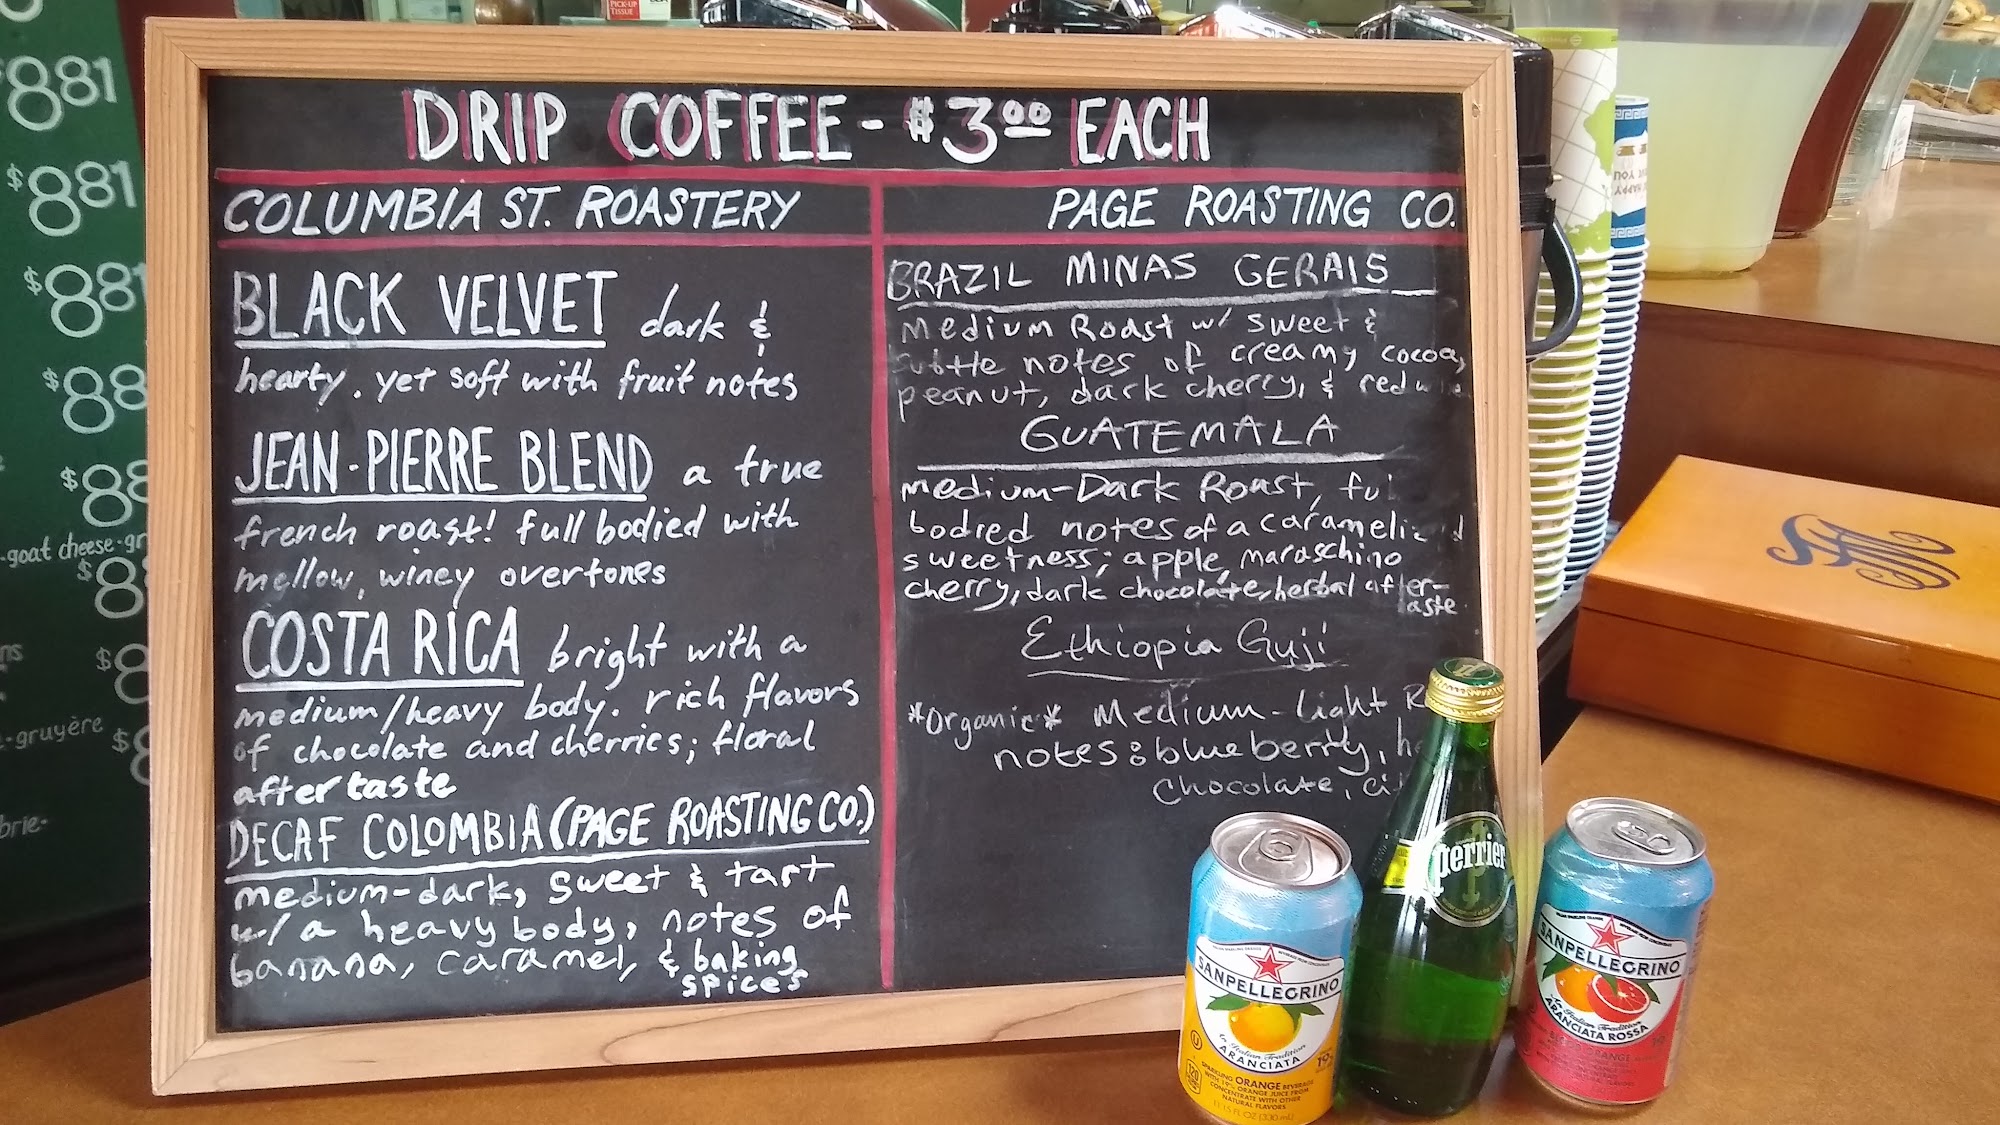 PICK-UP
TISSUE
DRIP COFFEE - $3.00 EACH
COLUMBIA ST. ROASTERY
BLACK VELVET dark &
hearty. yet soft with fruit notes
JEAN-PIERRE BLEND a true
french roast! full bodied with
mellow, winey overtones
COSTA RICA bright with a
medium/heavy body. rich flavors
of chocolate and cherries; floral
aftertaste
DECAF COLOMBIA (PAGE ROASTING CO.)
medium-dark, sweet & tart
w/ a heavy body, notes of
banana, caramel, & baking
spices
PAGE ROASTING CO.
BRAZIL MINAS GERAIS
Medium Roast w/ sweet &
subtle notes of creamy cocoa,
peanut, dark cherry, & red
GUATEMALA
medium-Dark Roast,
bodied notes of a
sweetness; apple, maraschino
cherry, dark chocolate, herbal after-
taste
Ethiopia Guji
*Organic* Medium-light
notes: blueberry,
chocolate,
$8.81
$8.81
$8.81
-goat cheese-
-gruyère
brie-
Perrier
SANPELLEGRINO
In Italian Tradition
ARANCIATA
SPARKLING ORANGE BEVERAGE
WITH 19% ORANGE JUICE FROM
CONCENTRATE WITH OTHER
NATURAL FLAVORS
11.15 FL OZ (330 mL)
120
19%
SANPELLEGRINO
In Italian Tradition
ARANCIATA ROSSA